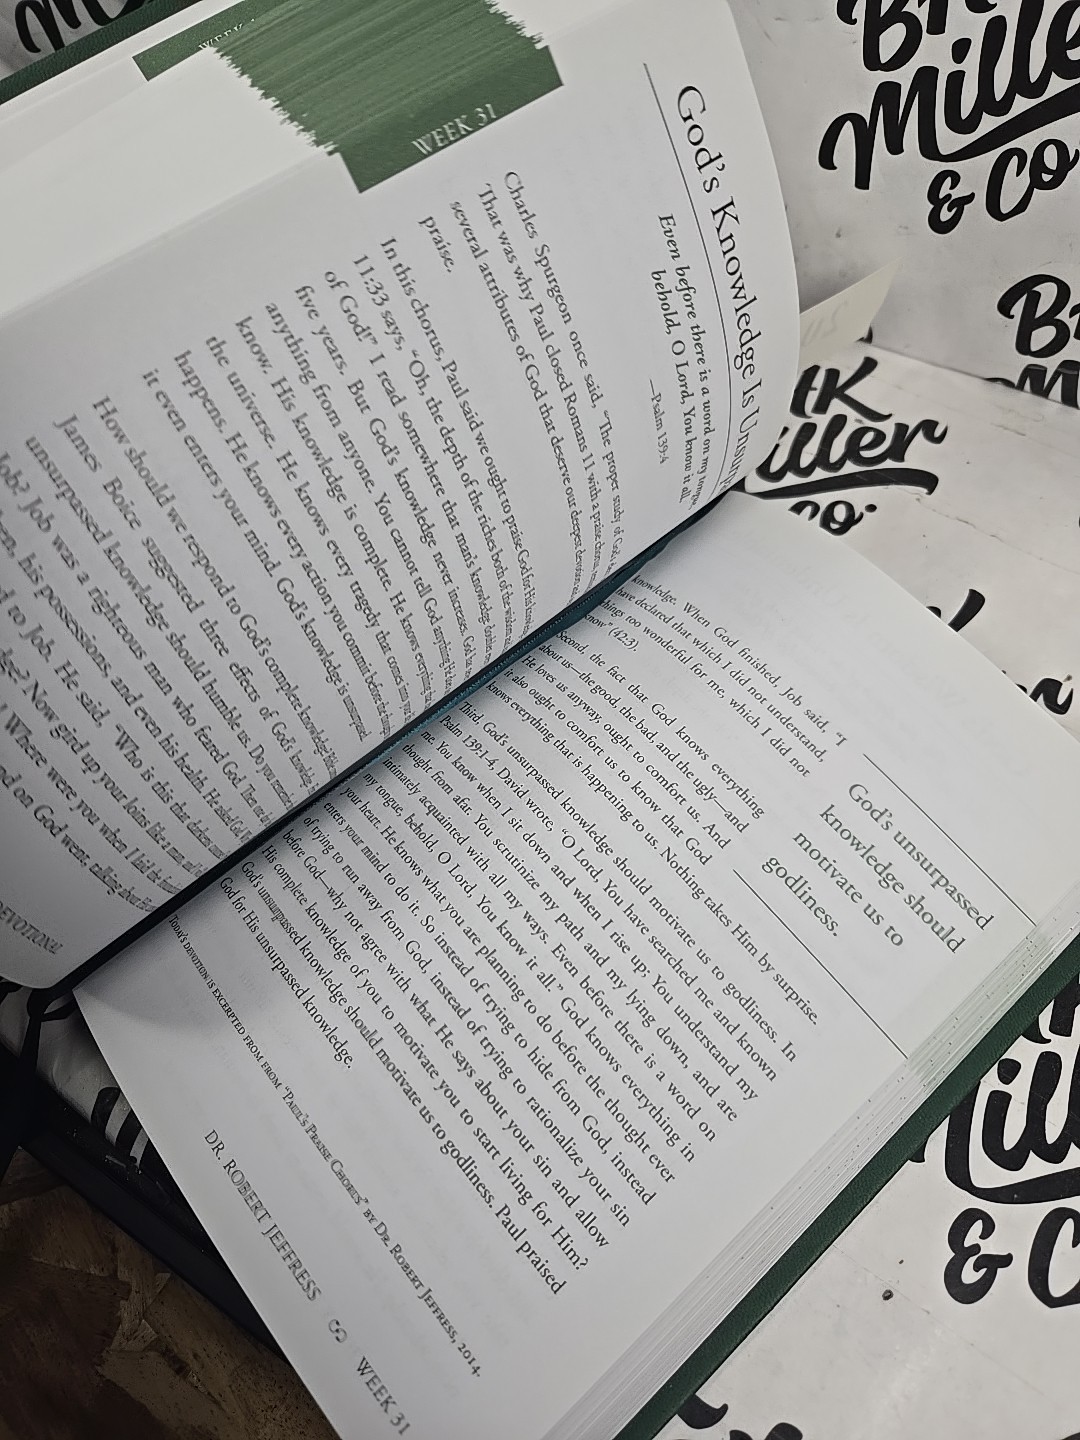 WEEK 31
God's Knowledge Is
Even before there is a word on my tongue,
behold, O Lord, You know it all.
—Psalm 139:4
Charles Spurgeon once said, "The proper study of God's
That was why Paul closed Romans 11 with a praise chorus,
several attributes of God that deserve our deepest devotion
praise.
In this chorus, Paul said we ought to praise God for His
11:33 says, "Oh, the depth of the riches both of the wisdom
of God!" I read somewhere that man's knowledge doubles
five years. But God's knowledge never increases. God
anything from anyone. You cannot tell God anything He
know. His knowledge is complete. He knows everything
the universe. He knows every tragedy that comes into
happens. He knows every action you commit before
it even enters your mind. God's knowledge is unsurpassed
How should we respond to God's complete knowledge
James Boice suggested three effects of God's
unsurpassed knowledge should humble us. Do you
Job? Job was a righteous man who feared God.
his possessions, and even his health. He
to Job. He said, "Who is this that
Now gird up your loins like a man,
Where were you when I laid the
on God went, talking about
DEVOTIONAL
knowledge. When God finished, Job said, "I
have declared that which I did not understand,
things too wonderful for me, which I did not
know" (42:3).
Second, the fact that God knows everything
about us—the good, the bad, and the ugly—and
He loves us anyway, ought to comfort us. And
it also ought to comfort us to know that God
knows everything that is happening to us. Nothing takes Him by surprise.
God's unsurpassed
knowledge should
motivate us to
godliness.
Third, God's unsurpassed knowledge should motivate us to godliness. In
Psalm 139:1-4, David wrote, "O Lord, You have searched me and known
me. You know when I sit down and when I rise up; You understand my
thought from afar. You scrutinize my path and my lying down, and are
intimately acquainted with all my ways. Even before there is a word on
my tongue, behold, O Lord, You know it all." God knows everything in
your heart. He knows what you are planning to do before the thought ever
enters your mind to do it. So instead of trying to hide from God, instead
of trying to run away from God, instead of trying to rationalize your sin
before God—why not agree with what He says about your sin and allow
His complete knowledge of you to motivate you to start living for Him?
God's unsurpassed knowledge should motivate us to godliness. Paul praised
God for His unsurpassed knowledge.
Today's devotion is excerpted from from "Paul's Praise Chorus" by Dr. Robert Jeffress, 2014.
DR. ROBERT JEFFRESS WEEK 31
Miller
& Co
Miller
Co.
& C